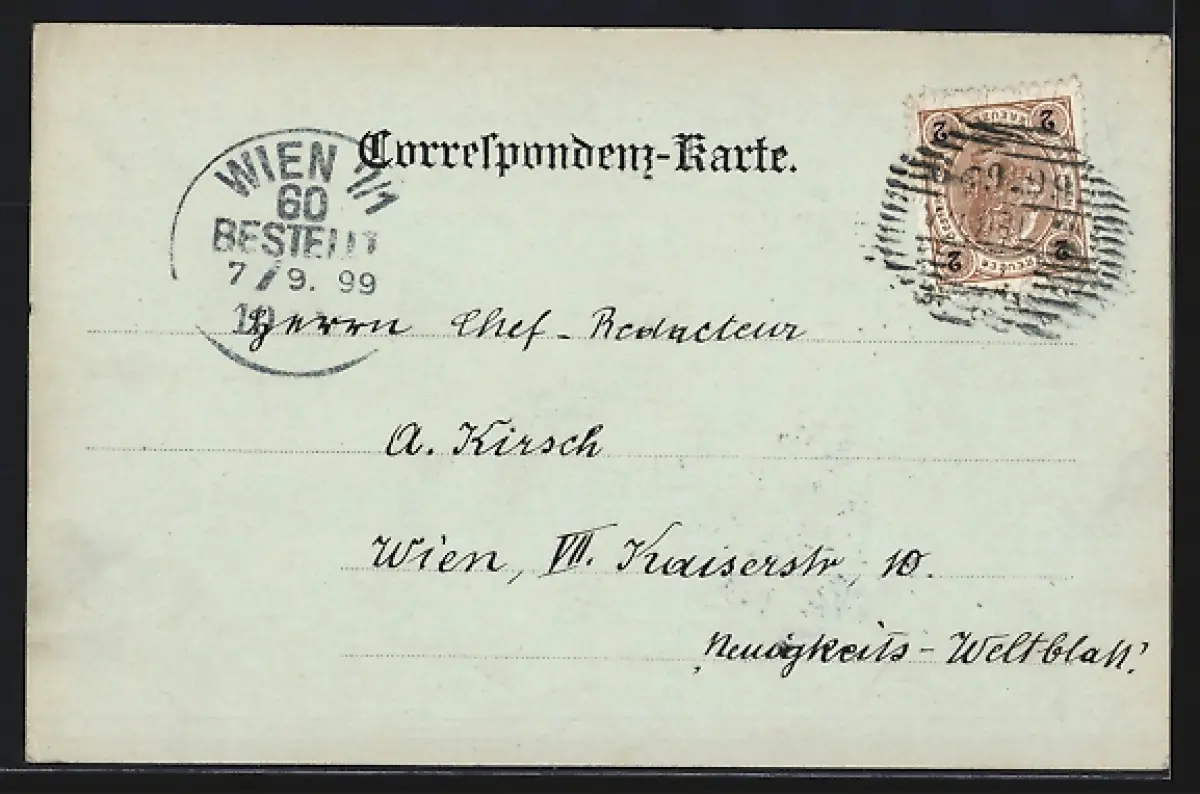 Correspondenz-Karte.
WIEN 7/1
60
BESTELLT
7/9. 99
2 2
2 2
Herrn Chef-Redacteur
A. Kirsch
Wien, VII. Kaiserstr, 10.
„Neuigkeits-Weltblatt"